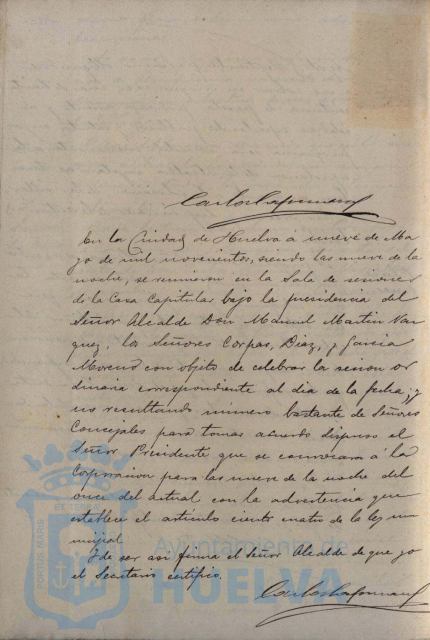 En la Ciudad de Huelva á nueve de Ma
yo de mil novecientos, siendo las nueve de la
noche, se reunieron en la Sala de sesiones
de la Casa Capitular bajo la presidencia del
Señor Alcalde Don Manuel Martin Vaz
quez, los Señores Corpas, Diaz, y Garcia
Moreno con objeto de celebrar la sesion or
dinaria correspondiente al dia de la fecha; y
no resultando número bastante de Señores
Concejales para tomar acuerdo dispuso el
Señor Presidente que se convocara á la
Corporacion para las nueve de la noche del
once del actual con la advertencia que
establece el artículo ciento cuatro de la ley mu
nicipal
Y de ser asi firma el Señor Alcalde de que yo
el Secretario certifico.
Carlos
PORTUS MARIS
Ayuntamiento de
HUELVA